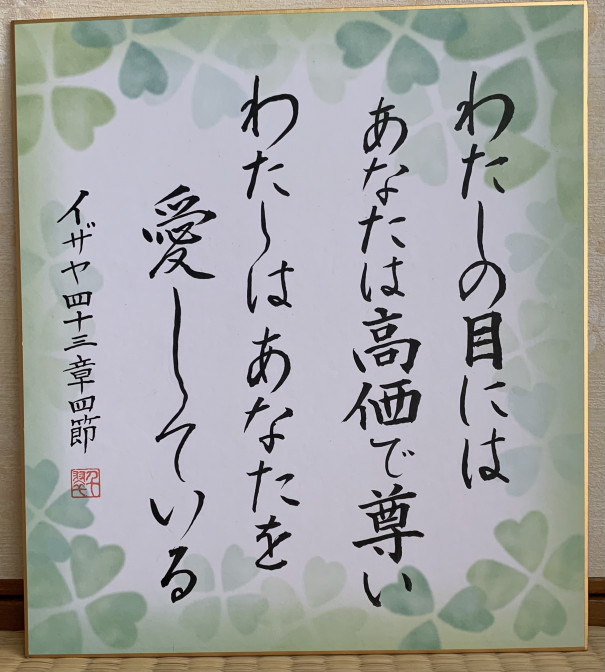 わたしの目には
あなたは高価で尊い
わたしはあなたを
愛している
イザヤ四十三章四節